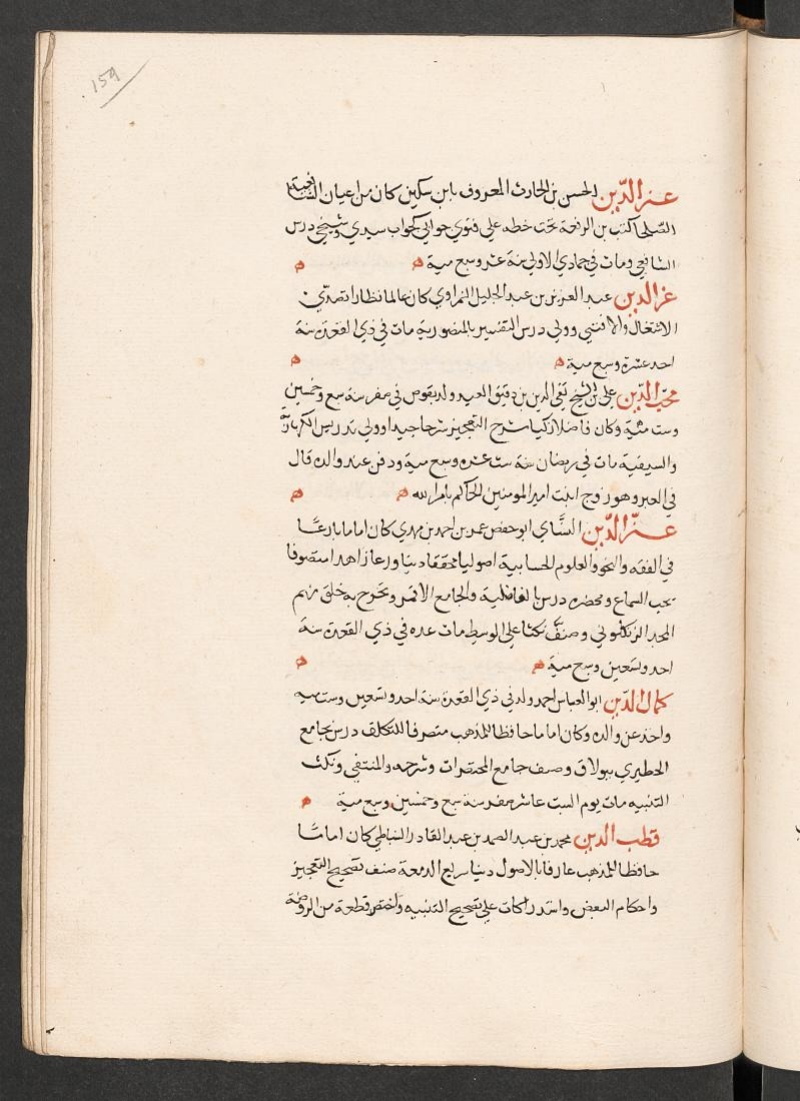 159
عز الدّين الحسن بن الحارث المعروف بابن سكين كان من اعيان الشافعية
الصلحا كتب بن الرفعة تحت خطه على فتوي جوابي كجواب سيدي وشيخي درس
الشافعي ومات في جمادي الاولي سنة عشر وسبع مية
عز الدين عبد العزيز بن عبد الجليل النمراوي كان عالما نظارا تصدي
الاشتغال والافتي وولي درس التفسير بالمنصورية مات في ذي القعدة سنة
احد عشرة وسبع مية
محب الدّين علي بن الشيخ تقي الدين بن دقيق العيد ولد بقوص في صفر سنة سبع وخمسين
وست مئية وكان فاضلا ذكيا شرح التعجيز شرحا جيدا وولي تدريس الكهارية
والسيفية مات في رمضان سنة ست عشره وسبع مية ودفن عند والده قال
في العبر وهو زوج ابنت امير المومنين الحاكم بامر الله
عز الدّين النشاي ابو حفص عمر بن احمد بن مهدي كان اماما بارعًا
في الفقه والنحو والعلوم الحسابية اصوليا محققا دينا ورعا زاهدا متصوفا
يحب السماع ويحضره درس بالفاضلية والجامع الاقمر وتخرج به خلق منهم
المجد الزنكلوني وصنف نكتا علي الوسيط مات عده في ذي القعدة سنة
احد وتسعين وسبع مية
كمال الدّين ابو العباس احمد ولد في ذي القعدة سنة احد وتسعين وست ميه
واخذ عن والده وكان اماما حافظا للمذهب متصرفا للتكلف درس بجامع
الخطيري ببولاق وصنف جامع المختصرات وشرحه والمنتقي ونكت
التنبيه مات يوم السبت عاشر صفر سنة سبع وخمسين وسبع مية
قطب الدين محمد بن عبد الصمد بن عبد القادر السنباطي كان امامًا
حافظا للمذهب عارفا بالاصول دينا سريع الدمعة صنف تصحيح التعجيز
واحكام المبعض واستدراكات علي تصحيح التنبيه واختصر قطعة من الروضة